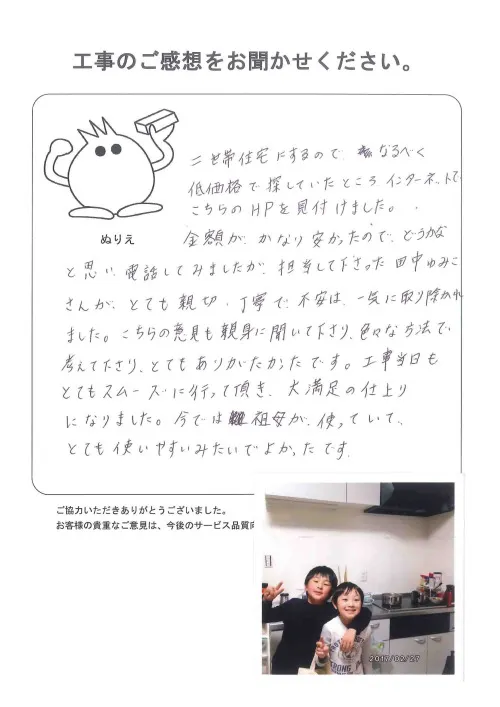 工事のご感想をお聞かせください。
二世帯住宅にするので、なるべく
低価格で探していたところ インターネットで
こちらのHPを見付けました。
ぬりえ
金額が、かなり安かったので、どうかな
と思い、電話してみましたが、担当して下さった田中ゆみこ
さんが、とても親切、丁寧で、不安は、一気に取り除かれ
ました。こちらの意見も親身に聞いて下さり、色々な方法で
考えて下さり、とてもありがたかったです。工事当日も
とてもスムーズに行って頂き、大満足の仕上り
になりました。今では祖母が、使っていて、
とても使いやすいみたいでよかったです。
ご協力いただきありがとうございました。
お客様の貴重なご意見は、今後のサービス品質向
2017/02/27